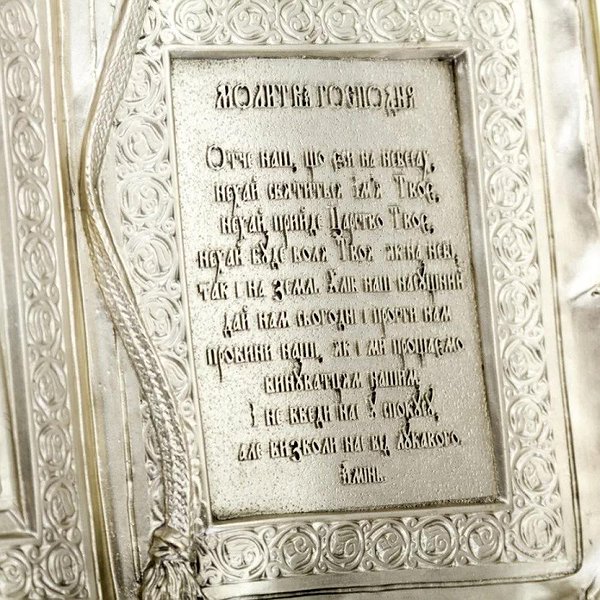 Молитва Господня
Отче наш, що єси на небесах,
нехай святиться ім'я Твоє,
нехай прийде Царство Твоє,
нехай буде воля Твоя як на небі,
так і на землі. Хліб наш насущний
дай нам сьогодні і прости нам
провини наші, як і ми прощаємо
винуватцям нашим.
І не введи нас у спокусу,
але визволи нас від лукавого.
Амінь.